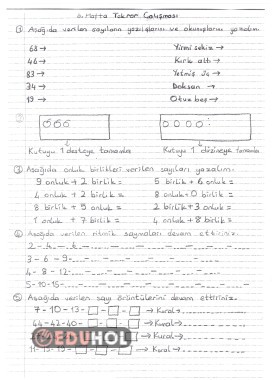 8. Hafta Tekrar Çalışması
① Aşağıda verilen sayıların yazılışlarını ve okunuşlarını yazalım
68 → Yirmi sekiz →
46 → Kırk altı →
83 → Yetmiş üç →
34 → Doksan →
19 → Otuz beş →
②
Kutuyu 1 desteye tamamla Kutuyu 1 düzineye tamamla
③ Aşağıda onluk birlikleri verilen sayıları yazalım.
9 onluk + 2 birlik = 5 birlik + 6 onluk =
4 onluk + 2 birlik = 8 onluk + 0 birlik =
8 birlik + 5 onluk = 2 birlik + 3 onluk =
1 onluk + 7 birlik = 4 onluk + 8 birlik =
④ Aşağıda verilen ritmik saymaları devam ettiriniz.
3 - 6 - 9 -
4 - 8 - 12 -
5 - 10 - 15 -
⑤ Aşağıda verilen sayı örüntülerini devam ettiriniz.
7 - 10 - 13 - → Kural >
44 - 42 - 40 - → Kural >
→ Kural >
→ Kural >
EDUHOL